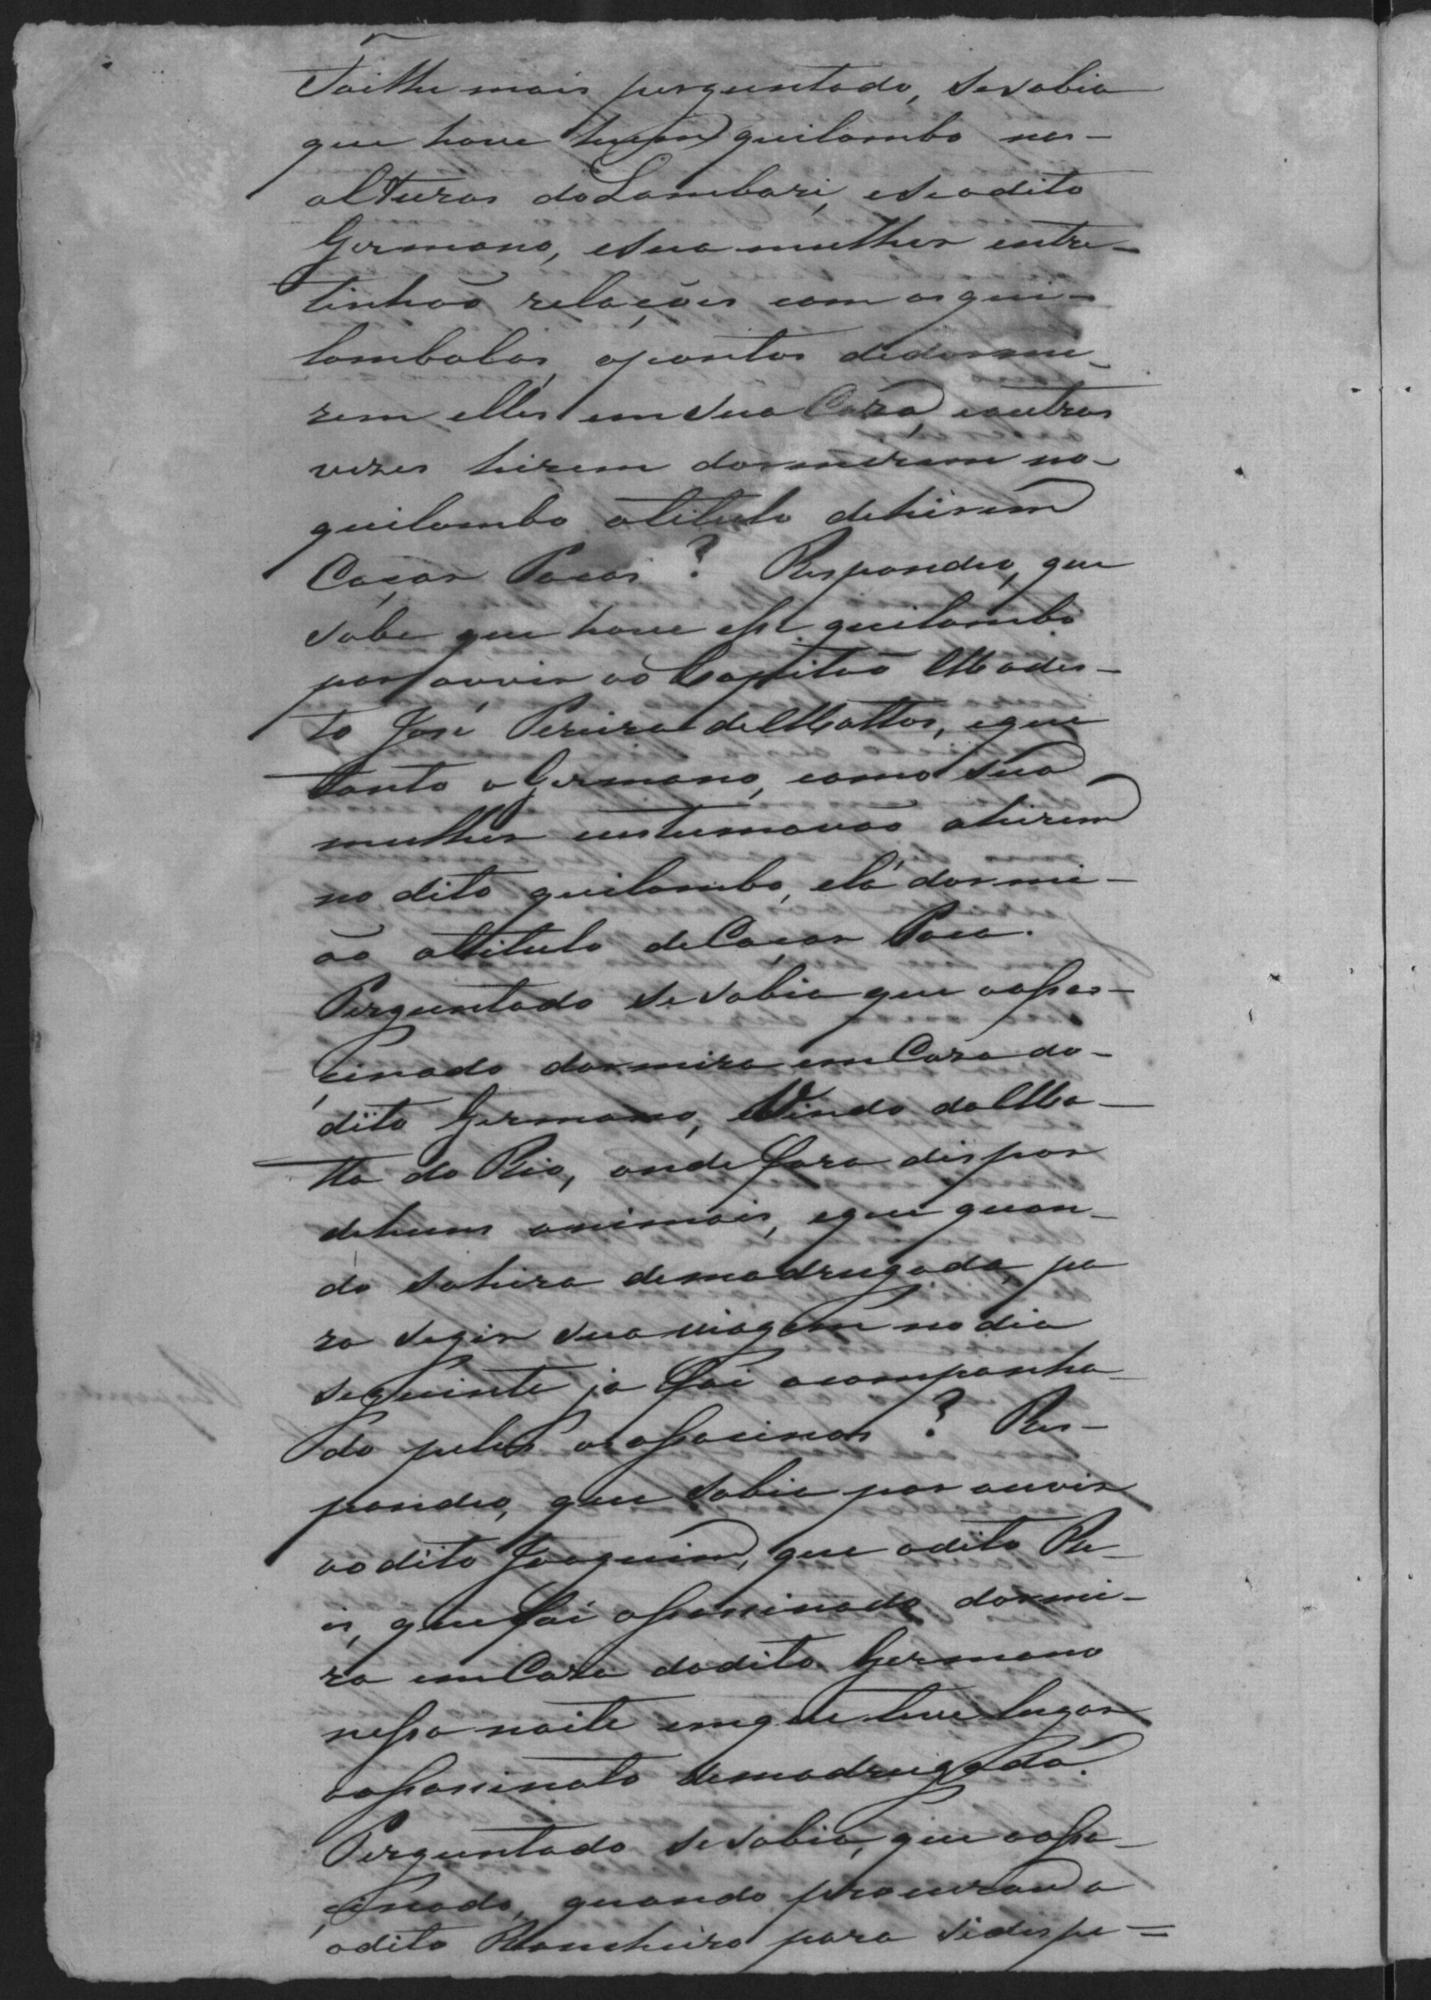 Foilhe mais perguntado, sesabia
que houve hum quilombo nas
alturas do Lambari, eseodito
Germano, esua mulher entre-
tinhão relações com osqui-
lombolas, apontos dedormi-
rem elles emsua Caza, eoutras
vezes hirem dormirem no
quilombo atitulo dehirem
Caçar Pacas? Respondeo, que
sabe que houve esse quilombo
por ouvir ao Capitão Modes-
to José Pereira deMattos, eque
tanto o Germano, como sua
mulher custumavão ahirem
no dito quilombo, elá dormi-
ão atitulo deCaçar Paca.
Perguntado sesabia que oassas-
cinado dormira emCaza do
dito Germano, Vindo daMa-
ta do Rio, onde fora dispor
dehuns animais, eque quan-
do sahira demadrugada, pa
ra segir sua viagem nodia
seguinte ja foi acompanha-
do pelos assacinos? Res-
pondeo, que sabia por ouvir
aodito Joaquim, que odito Re-
is, quefoi assasinado dormi-
ra emCaza dodito Germano
nessa noite emque teve lugar
oassasinato demadrugada.
Perguntado sesabia, que oassa-
cinado, quando procurava
odito Rancheiro para sidispe=